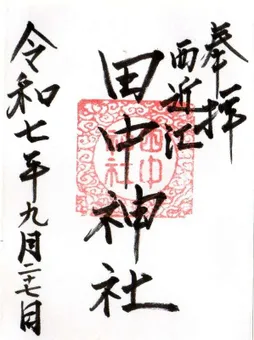 奉拝
西近江
田中神社
令和七年九月二十七日